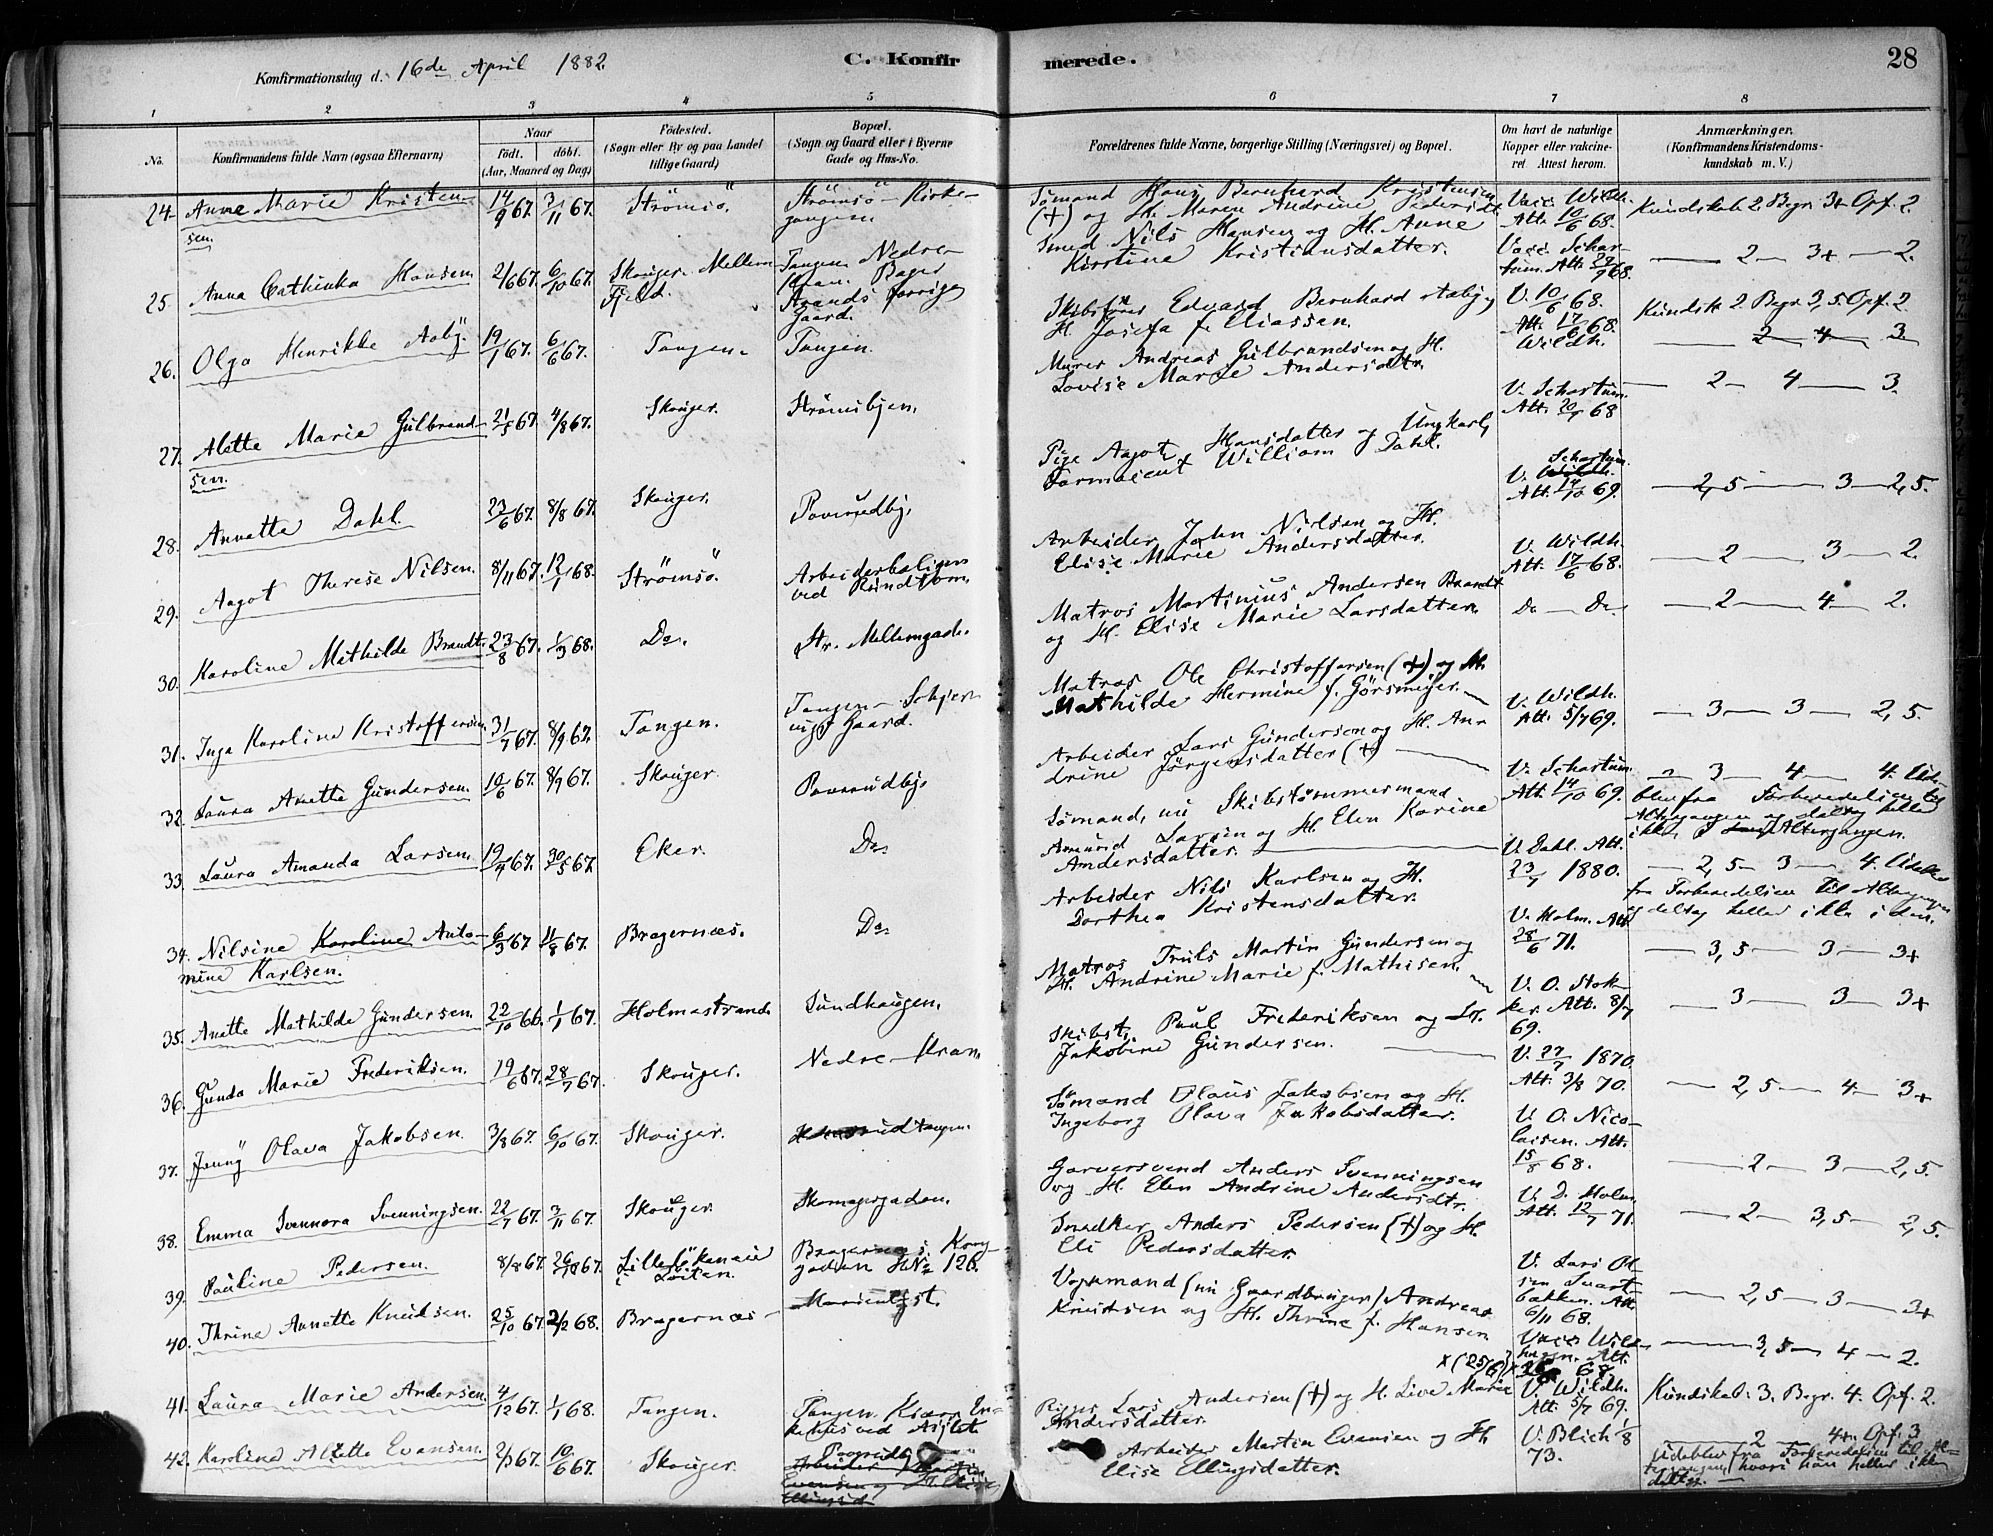 Konfirmationsdag d. 16de April 1882 C. Konfir merede. 28
1 2 3 4 5 6 7 8
No. Konfirmandens fulde Navn (ogsaa Efternavn) Naar født. døbt. (Aar, Maaned og Dag) Fødested. (Sogn eller By og paa Landet tillige Gaard) Bopæl. (Sogn og Gaard eller i Byerne Gade og Hus-No. Forældrenes fulde Navne, borgerlige Stilling (Næringsvei) og Bopæl. Om havt de naturlige Kopper eller vakcineret. Attest herom. Anmærkninger. (Konfirmandens Kristendomskundskab m. V.)
24. Anne Marie Kristensen. 14/9 67. 3/11 67. Strömsö. Strömsö - Kirkegangen Sömand Hans Bernhard Kristensen (+) og H. Maren Andrine Pedersdt Vacc. Wildh. Att. 10/6 68. Kundskab 2. Begr. 3+ Opf. 2.
25. Anna Cathinka Hansen 2/6 67. 6/10 67. Skouger Mellem Fjeld. Tangen Nedre Kran. Bager Strands forrige Gaard. Smed Nils Hansen og H. Anne Kirstine Kristiansdatter. Vacc. Schartum. Att. 29/9 68. — 2 — 3+ — 2.
26. Olga Henrikke Aaby. 19/1 67. 6/6 67. Tangen. Tangen. Skibsförer Edvard Bernhard Aaby, H. Josefa f. Eliassen. V. 10/6 68. Att. 17/6 68. Wildh. Kundsk. 2. Begr. 3,5. Opf. 2.
— 2 — 4 — 3
27. Alette Marie Gulbrandsen. 21/5 67. 4/8 67. Skouger. Strömsbyen. Murer Andreas Gulbrandsen og H. Lovise Marie Andersdtr. V. Schartum. Att. 20/9 68 — 2 — 4 — 3.
28. Annette Dahl. 23/6 67. 8/8 67. Skouger. Poverudby. Pige Aagot Hansdatter og Ungkarl, Farmaceut William Dahl. V. Wildh. Schartum. Att. 14/10 69. — 2,5 — 3 — 2,5.
29. Aagot Therese Nilsen. 8/11 67. 12/1 68. Strömsö. Arbeiderboligen ved Rundtom. Arbeider John Nilsen og H. Elise Marie Andersdatter. V. Wildh. Att. 17/6 68. — 2 — 3 — 2.
30. Karoline Mathilde Brandt. 23/8 67. 1/3 68. Do. Str. Mellemgade. Matros Martinius Andersen Brandt og H. Elise Marie Larsdatter. Do — Do — 2 — 4 — 2.
31. Inga Karoline Kristoffersen. 31/7 67. 8/9 67. Tangen. Tangen - Gaard. Matros Ole Christoffersen (+) og H. Mathilde Hermine f. Görsmeyer. V. Wildh. Att. 5/7 69. — 3 — 3 — 2,5.
32. Laura Anette Gundersen. 10/6 67. 8/9 67. Skouger. Poverudby. Arbeider Lars Gundersen og H. Andrine Jörgensdatter (+) V. Schartum. Att. 14/10 69. — 3 — 4 — 4. Udeblev fra Forberedelsen til Altergangen og deltog heller ikke i Altergangen.
33. Laura Amanda Larsen. 19/4 67. 30/5 67. Eker. Do. Sömand, nu Skibstömmermand Amund Larsen og H. Elen Karine Andersdatter. V. Dahl. Att. 23/1 1880. — 2,5 — 3 — 4. Udeblev fra Forberedelsen til Altergangen og deltog heller ikke i den.
34. Nilsine Karoline Antomine Karlsen. 6/3 67. 11/8 67. Bragernæs. Do. Arbeider Nils Karlsen og H. Dorthea Kristensdatter. V. Holm. Att. 28/6 71. — 3,5 — 3 — 3+
35. Anette Mathilde Gundersen. 22/10 66. 1/1 67. Holmestrand. Sundhaugen. Matros Truls Martin Gundersen og H. Andrine Marie f. Mathisen. V. O. Stokker. Att. 8/7 69. — 3 — 3 — 3+
36. Gunda Marie Frederiksen. 19/6 67. 28/7 67. Skouger. Nedre - Kran Skibst. Paul Frederiksen og H. Jakobine Gundersen. V. 27/7 1870. Att. 3/8 70. — 2,5 — 4 — 3+
37. Jenny Olava Jakobsen. 3/8 67. 6/10 67. Skouger. Sömand Olaus Jakobsen og H. Ingeborg Olava Jakobsdatter. V. O. Nicolaisen. Att. 15/8 68. — 2 — 3 — 2,5.
38. Emma Svennora Svenningsen. 22/7 67. 3/11 67. Skouger. Skomagergaden. Garversvend Anders Svenningsen og H. Elen Andrine Andersdtr. V. D. Holm. Att. 12/7 71. — 2 — 3,5 — 2,5.
39. Pauline Pedersen. 8/8 67. 26/10 67. i Löiten. Bragernæs: Konggaden H No 126. Snedker Anders Pedersen (+) og H. Eli Pedersdatter. V. Lars Olsen Svartbakken. Att. 6/11 68. — 2,5 — 3 — 3+
40. Thrine Annette Knudsen. 25/10 67. 2/2 68. Bragernæs - Marienlyst. Vognmand (nu Gaardbruger) Andreas Knudsen og H. Thrine f. Hansen Vacc. Wildhagen. Att. — 3,5 — 4 — 2.
41. Laura Marie Andersen. 4/12 67. 1/1 68. Tangen. Tangen. Kiærs Enkehus ved Asylet Rigger Lars Andersen (+) og H. Live Marie Andersdatter. V. Wildh. Att. 5/7 69. Kundskab. 3. Begr. 4. Opf. 2.
42. Karoline Alette Evensen. 2/3 67. 10/6 67. Skouger. Arbeider Martin Evensen og H. Elise Ellingsdatter. V. Blich 1/8 73. — 2 — 4+ Opf. 3 Udeblev fra Forberedelsen til Altergangen, hvori han heller ikke deltog.